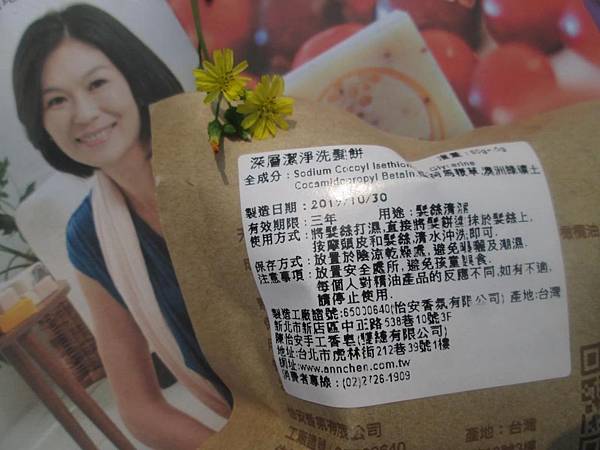 深層潔淨洗髮餅
全成分：Sodium Cocoyl Isethion
Cocamidopropyl Betain 阿馬鞭草,澳洲綠礦土
製造日期：2019/10/30
有效期限：三年 用途：髮絲清潔
使用方式：將髮絲打濕,直接將髮餅塗抹於髮絲上,
按摩頭皮和髮絲,清水沖洗即可.
保存方式：放置於陰涼乾燥處,避免曝曬及潮濕.
注意事項：放置安全處所,避免孩童誤食.
每個人對精油產品的反應不同,如有不適,
請停止使用.
製造工廠證號:65000640(怡安香氛有限公司) 產地:台灣
新北市新店區中正路538巷10號3F
陳怡安手工香皂(有限公司)
地址:台北市虎林街212巷39號1樓
網址:www.annchen.com.tw
消費者專線：(02)2726-1909
怡安香氛有限公司
產地：台灣